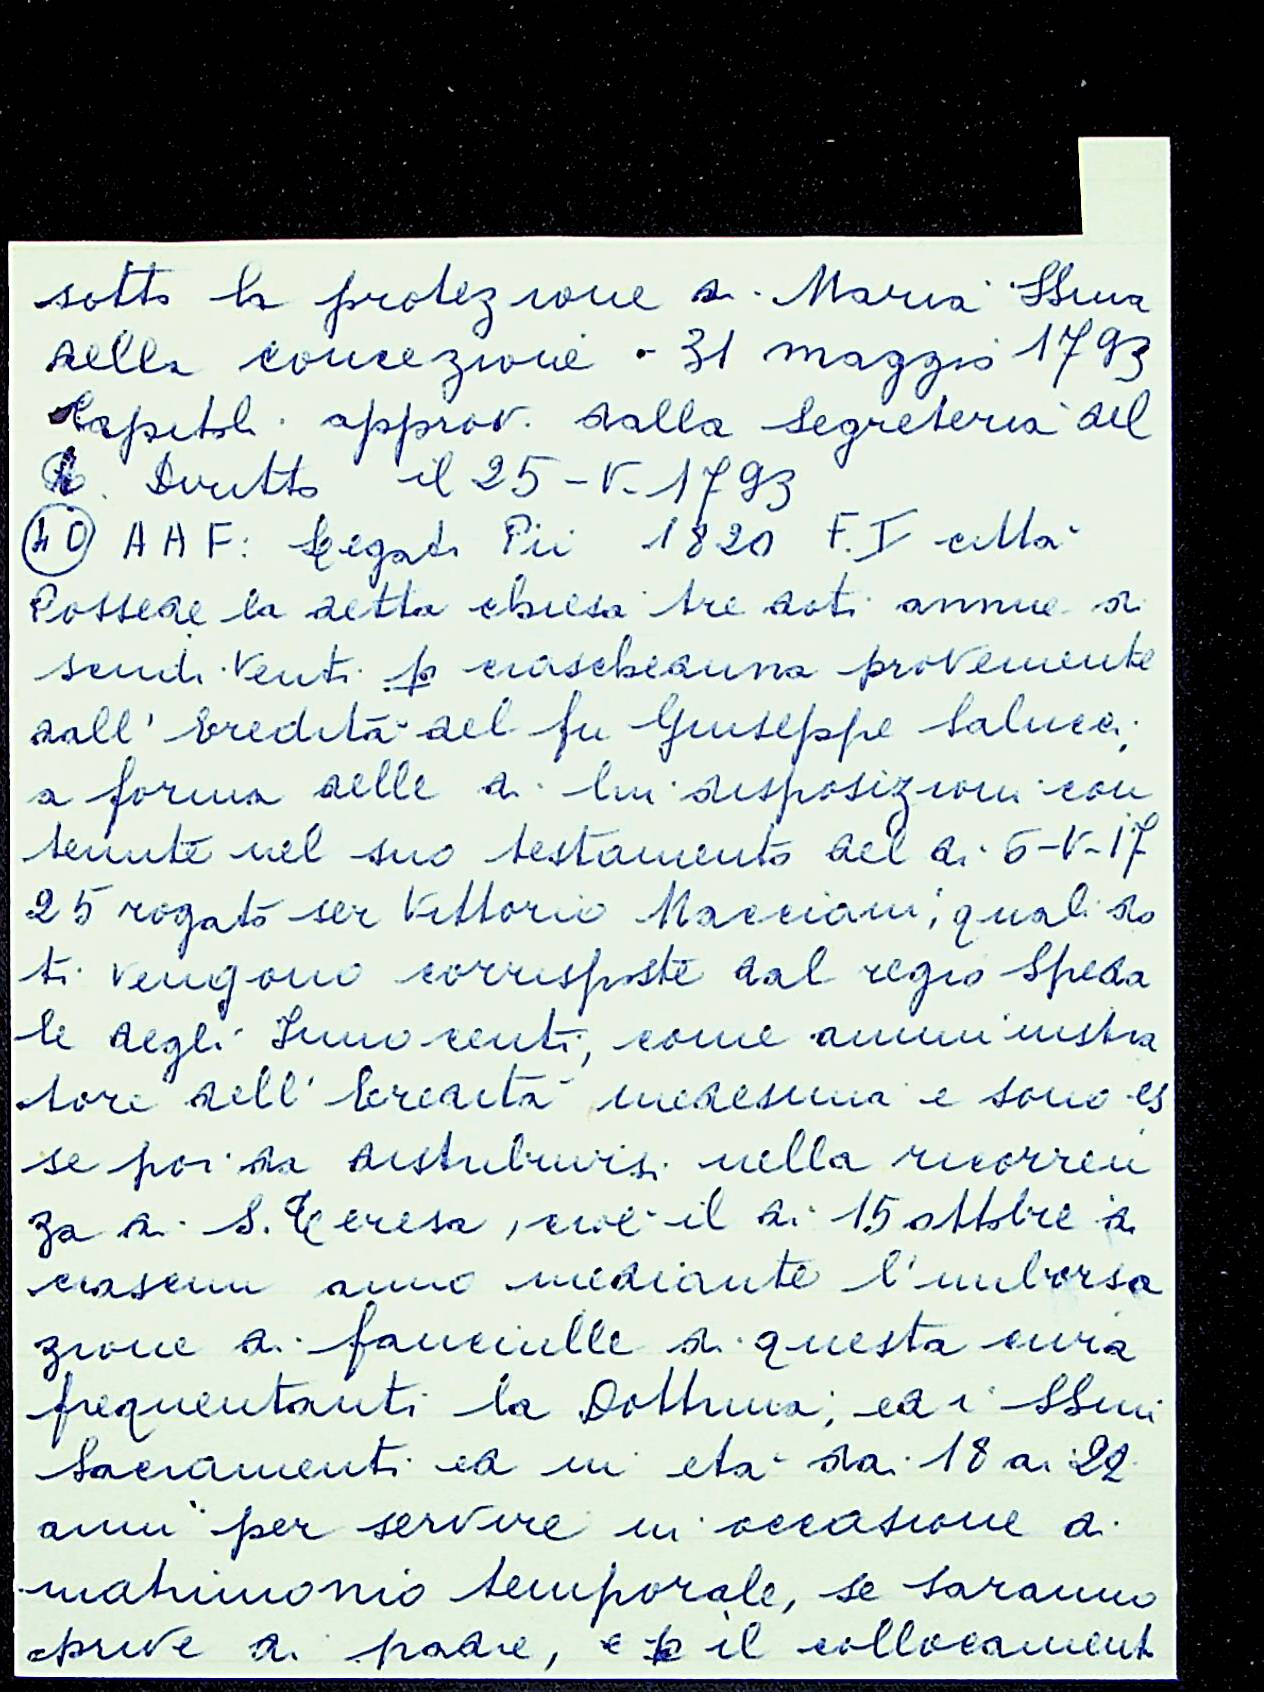 sotto la protezione di Maria SSma
della concezione - 31 maggio 1793
Capitoli approv. dalla Segreteria del
R. Diritto il 25-V-1793
40 AAF: Legati Pii 1820 F. I città
Possede la detta chiesa tre doti annue di
scudi venti p ciascheduna provemente
dall' Eredità del fu Giuseppe Salucci,
a forma delle di lui disposizioni con
tenute nel suo testamento del di 6-V-17
25 rogato ser Vittorio Macciani, quali do
ti vengono corrisposte dal regio Speda
le degli Innocenti, come amministra
tore dell' Eredità medesima e sono es
se poi da distribuirsi nella ricorren
za di S. Teresa, cioè il di 15 ottobre di
ciascun anno mediante l'imborsa
zione di fanciulle di questa cura
frequentanti la Dottrina, ed i SSmi
Sacramenti ed in età dai 18 ai 22
anni per servire in occasione di
matrimonio temporale, se saranno
prive di padre, e p il collocament